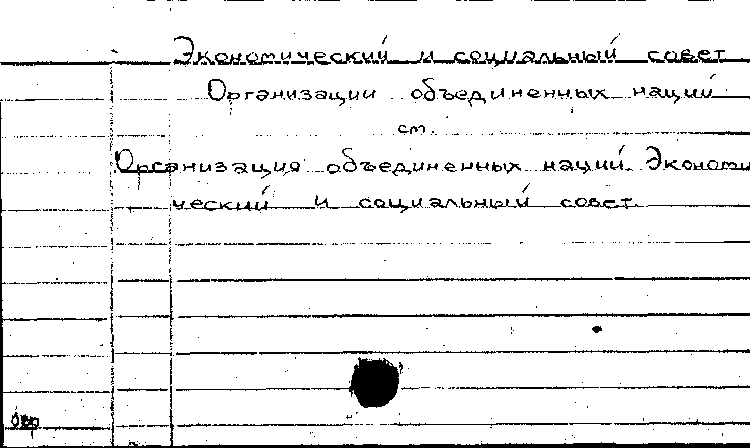 Экономический и социальный совет
Организации объединенных наций
см.
Организация объединенных наций. Экономи
ческий и социальный совет.